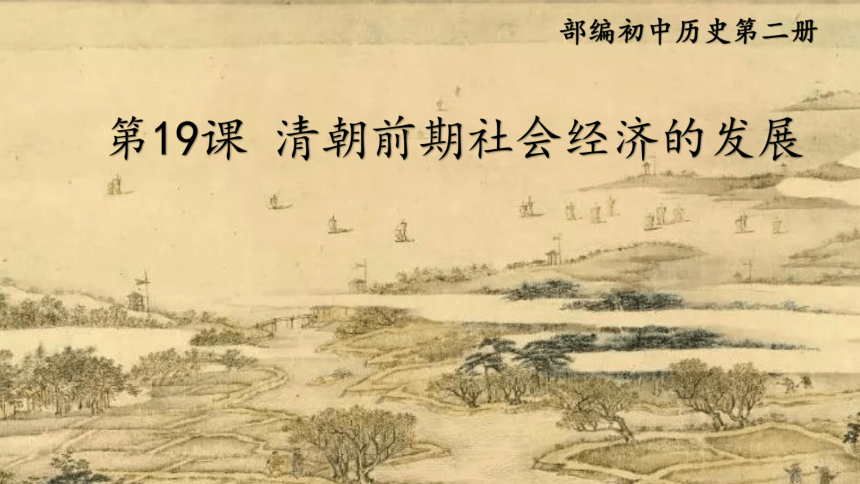 部编初中历史第二册
第19课 清朝前期社会经济的发展